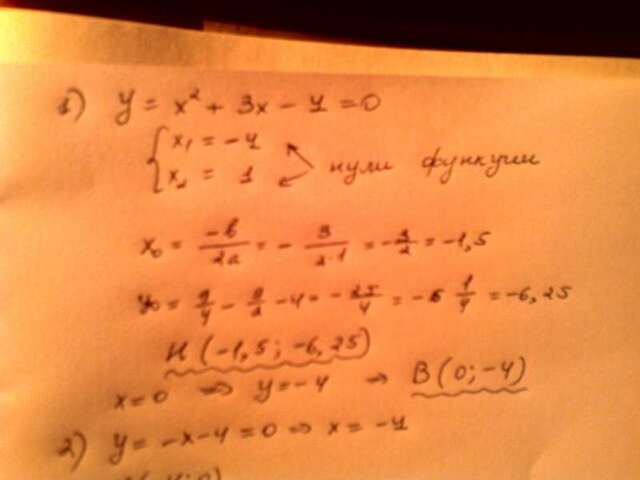 1) y = x² + 3x - 4 = 0
{ x₁ = -4
x₂ = 1
нули функции
x₀ = -b/2a = - 3/2·1 = -3/2 = -1,5
y₀ = 9/4 - 9/2 - 4 = -25/4 = -6 1/4 = -6,25
H (-1,5; -6,25)
x=0 ⇒ y=-4 ⇒ B(0;-4)
2) y = -x-4=0 ⇒ x = -4